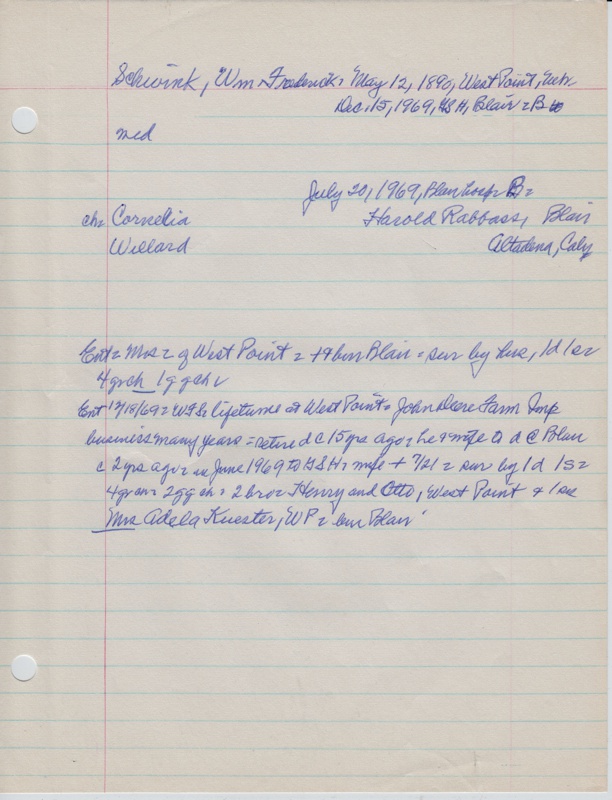 Schwink, Wm Frederick = May 12, 1890, West Point, Nebr
Dec. 15, 1969, GSH, Blair = B
md
July 20, 1969, Blair hosp B =
ch = Cornelia Harold Rabbass, Blair
Willard Altadena, Calif
Ent = Mrs = of West Point = + bur Blair = sur by hus, 1d 1s =
4 grch 1 ggch
Ent 12/18/69 = lifetime at West Point = John Deere Farm Imp
business many years = retired c 15 yrs ago = he + wife to d @ Blair
c 2 yrs ago = June 1969 to GSH = wife + 7/21 = sur by 1d 1s =
4 grch = 2 ggch = 2 bro = Henry and Otto, West Point + 1 sis
Mrs Adela Kuester, WP = bur Blair